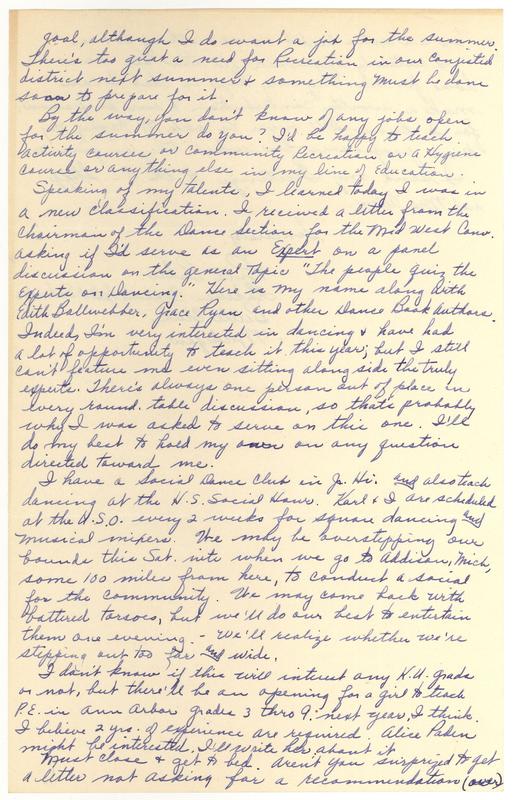 goal, although I do want a job for the summer.
There's too great a need for Recreation in our congested
district next summer & something must be done
soon to prepare for it.
By the way, you don't know of any jobs open
for the summer do you? I'd be happy to teach
activity courses or community Recreation or a Hygiene
course or anything else in my line of Education.
Speaking of my talents, I learned today I was in
a new classification. I received a letter from the
Chairman of the Dance Section for the Mid West Conv.
asking if I'd serve as an Expert on a panel
discussion on the general Topic "The people quiz the
Experts on Dancing." Here is my name along with
Edith Ballwebber, Grace Ryan and other Dance Book Authors.
Indeed, I'm very interested in dancing & have had
a lot of opportunity to teach it this year, but I still
can't feature me even sitting along side the truly
experts. There's always one person out of place in
every round table discussion, so that's probably
why I was asked to serve on this one. I'll
do my best to hold my own on any question
directed toward me.
I have a Social Dance Club in Jr. Hi. and also teach
dancing at the H.S. Social Hour. Karl & I are scheduled
at the U.S.O. every 2 weeks for square dancing and
musical mixers. We may be overstepping our
bounds this Sat. nite when we go to Addison, Mich,
some 100 miles from here, to conduct a social
for the community. We may come back with
battered torsoes, but we'll do our best to entertain
them one evening. - We'll realize whether we're
stepping out too far and wide.
I don't know if this will interest any K.U. grads
or not, but there'll be an opening for a girl to teach
P.E. in Ann Arbor grades 3 thro 9, next year, I think.
I believe 2 yrs. of experience are required. Alice Paden
might be interested. I'll write her about it.
Must close & get to bed. Aren't you surprized to get
a letter not asking for a recommendation (over)